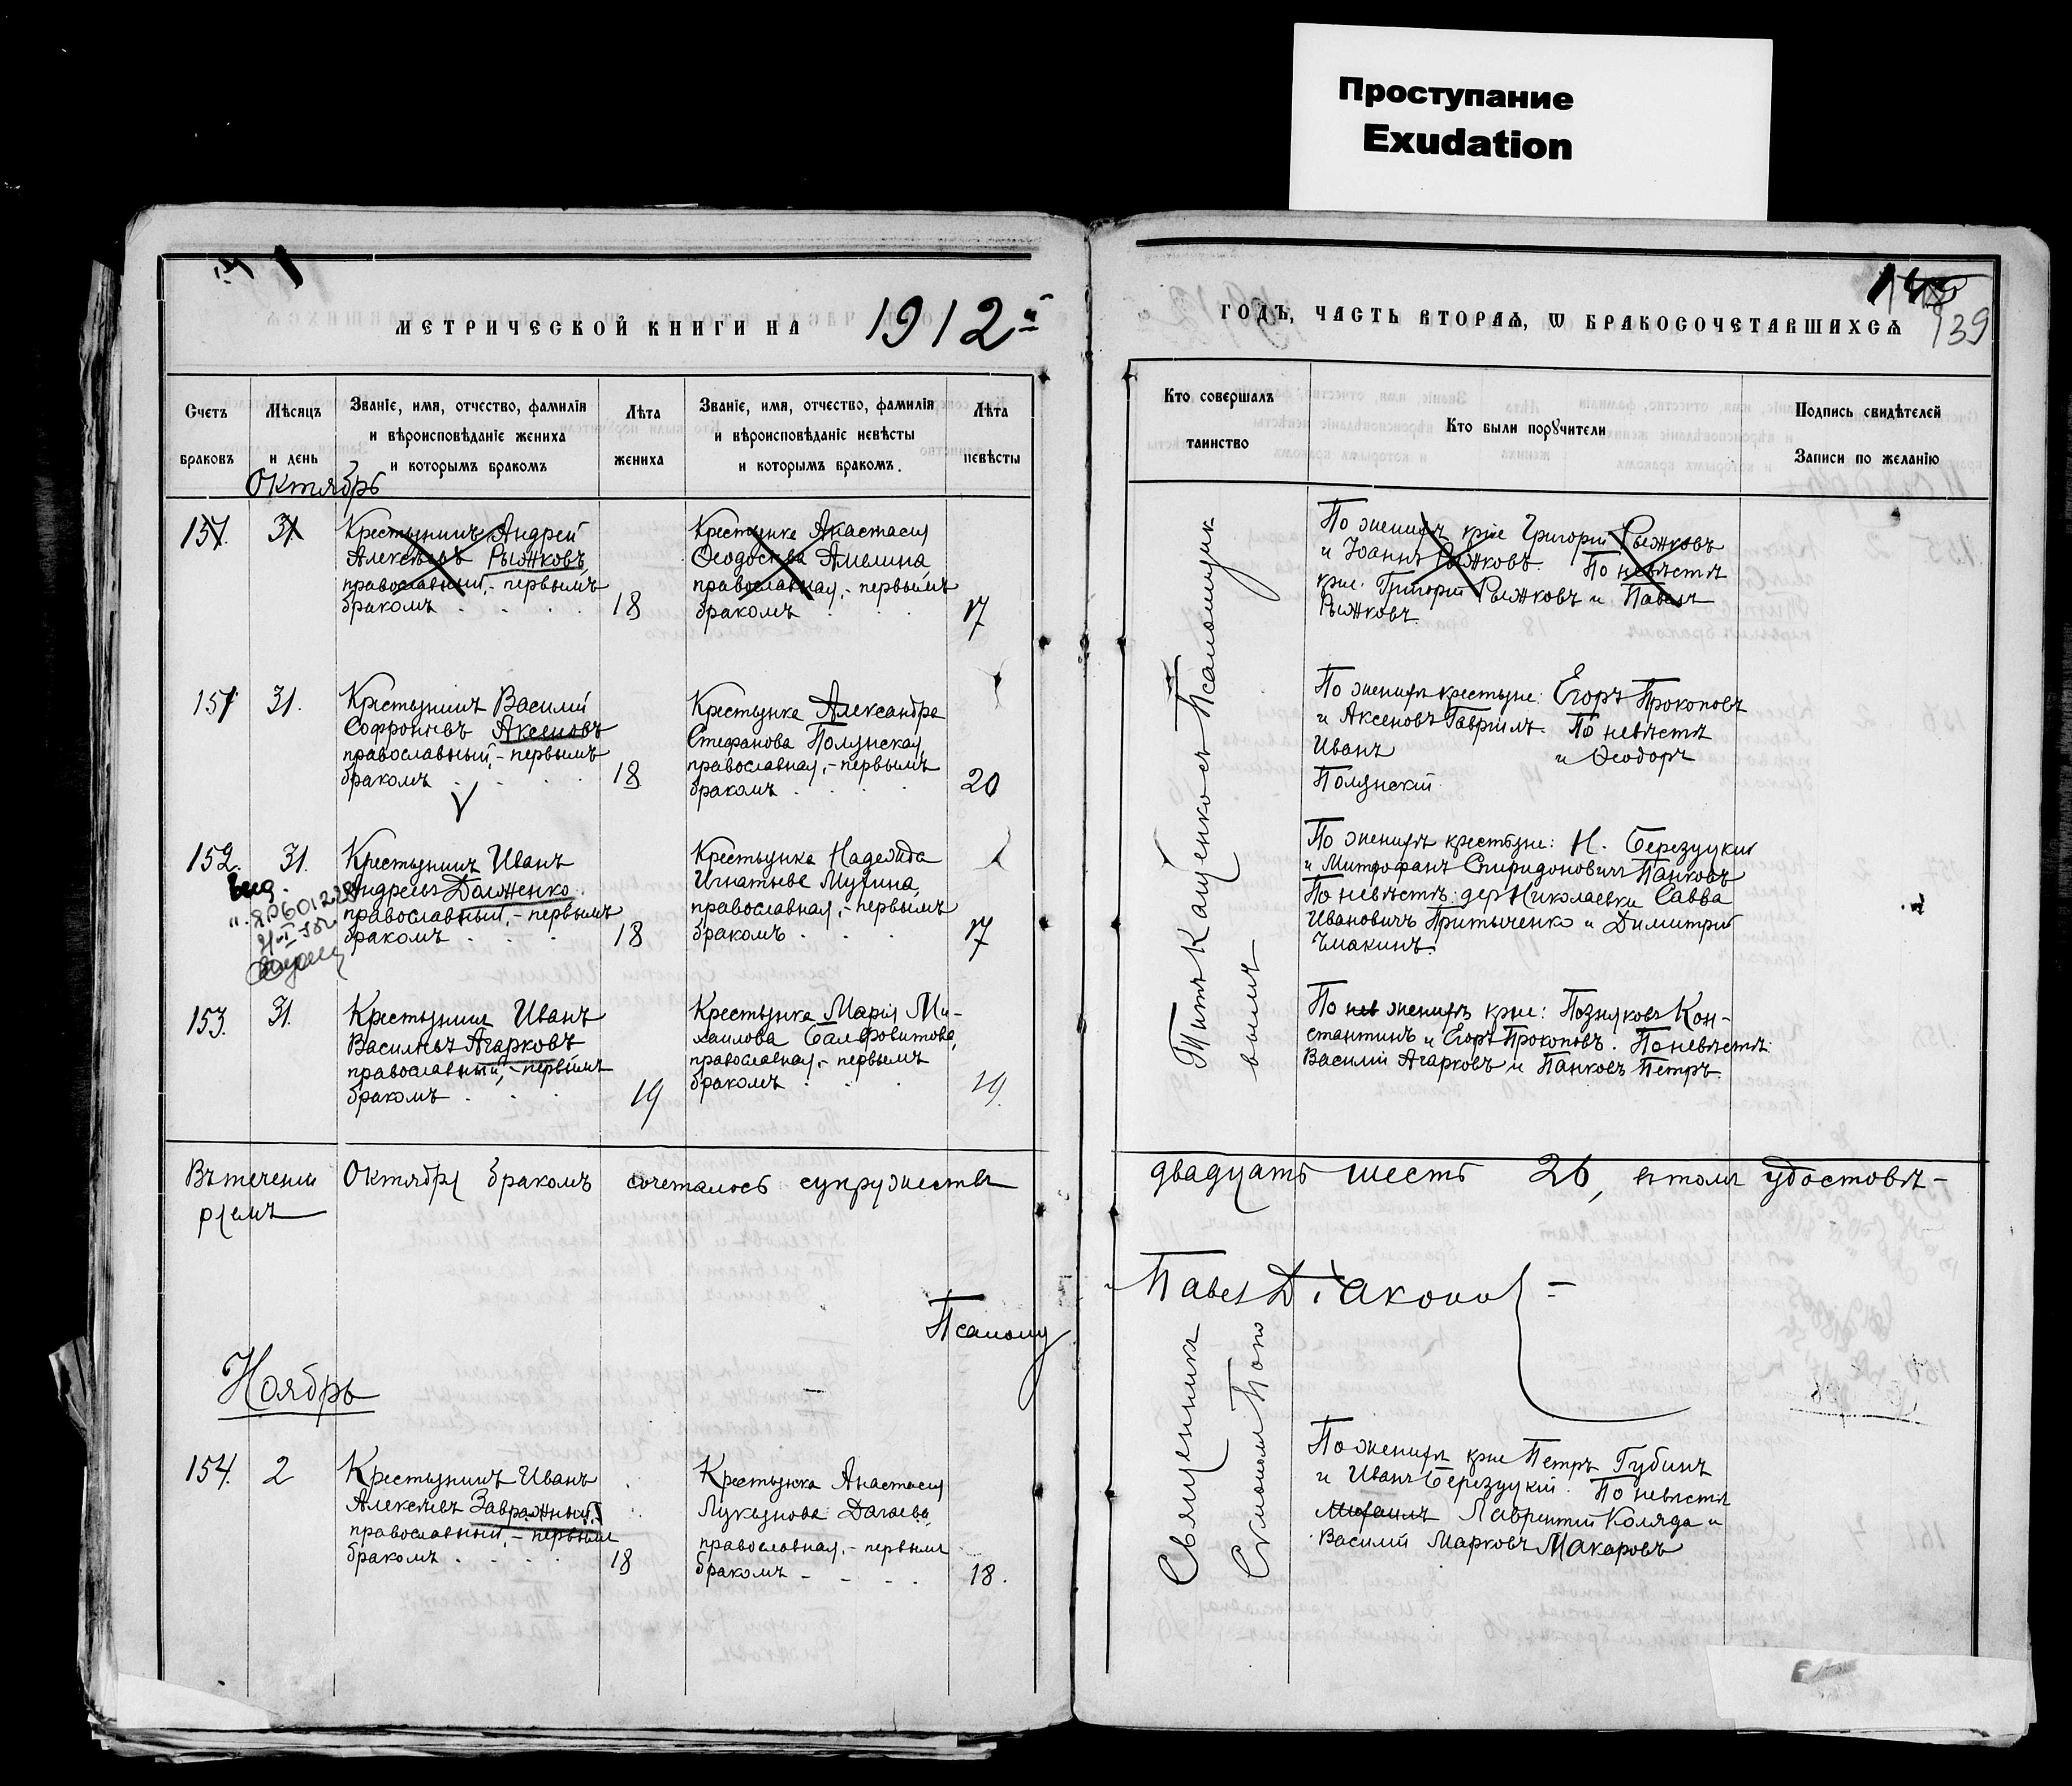 Проступание
Exudation
МЕТРИЧЕСКОЙ КНИГИ НА 1912й
Счетъ браковъ
Мѣсяцъ и день
Званіе, имя, отчество, фамилія
и вѣроисповѣданіе жениха
и которымъ бракомъ
Лѣта
жениха
Званіе, имя, отчество, фамилія
и вѣроисповѣданіе невѣсты
и которымъ бракомъ.
Лѣта
невѣсты
Октябрь
151. 31
Крестьянинъ Андрей
Алексѣевъ Рыжковъ
православный, - первымъ
бракомъ
18
Крестьянка Анастасія
Ѳеодосіева Амелина
православная, - первымъ
бракомъ
17
151 31.
Крестьянинъ Василій
Софроніевъ Аксеновъ
православный, - первымъ
бракомъ
18
Крестьянка Александра
Стефанова Полянская,
православная, - первымъ
бракомъ
20
152. 31.
Крестьянинъ Иванъ
Андреевъ Долженко
православный, - первымъ
бракомъ
18
Крестьянка Надежда
Игнатьева Мухина,
православная, - первымъ
бракомъ
17
153. 31.
Крестьянинъ Иванъ
Васильевъ Агарковъ
православный, - первымъ
бракомъ
19
Крестьянка Марія Ми-
хаилова
православная, - первымъ
бракомъ
19.
Въ теченіи Октября бракомъ сочеталось супружествъ
ряемъ
Псаломщ
Ноябрь
154. 2
Крестьянинъ Иванъ
Алексѣевъ Завражный
православный, - первымъ
бракомъ
18
Крестьянка Анастасія
Лукьянова Дагаева,
православная, - первымъ
бракомъ
18.
ГОДЪ, ЧАСТЬ ВТОРАЯ, Ѡ БРАКОСОЧЕТАВШИХСЯ
139
Кто совершалъ
таинство
Кто были порꙋчители
Подпись свидѣтелей
Записи по желанію
По женихѣ кр-не Григорій Рыжковъ
и Іоаннъ Рыжковъ. По невѣстѣ
кр-не. Григорій Рыжковъ и Павелъ
Рыжковъ.
По женихѣ крестьяне: Егоръ Прокоповъ
и Аксеновъ Гавріилъ. По невѣстѣ
Иванъ и Ѳеодоръ
Полянскій.
По женихѣ крестьяне: Н. Березуцкій
и Митрофанъ Спиридоновичъ Панковъ
По невѣстѣ: дер Николаевки Савва
Ивановичъ Притыченко и Димитрій
Чмакинъ.
По нев женихѣ кр-не: Позняковъ Кон-
стантинъ и Егоръ Прокоповъ. По невѣстѣ:
Василій Агарковъ и Панковъ Петръ.
Титъ Кащенко съ Псаломщик
двадцать шесть 26, въ томъ удостовѣ-
Павел Дiаконов
Священникъ
По женихѣ кр-не Петръ Губинъ
и Иванъ Березуцкій. По невѣстѣ
Михаилъ Лаврентій Коляда и
Василій Марковъ Макаровъ